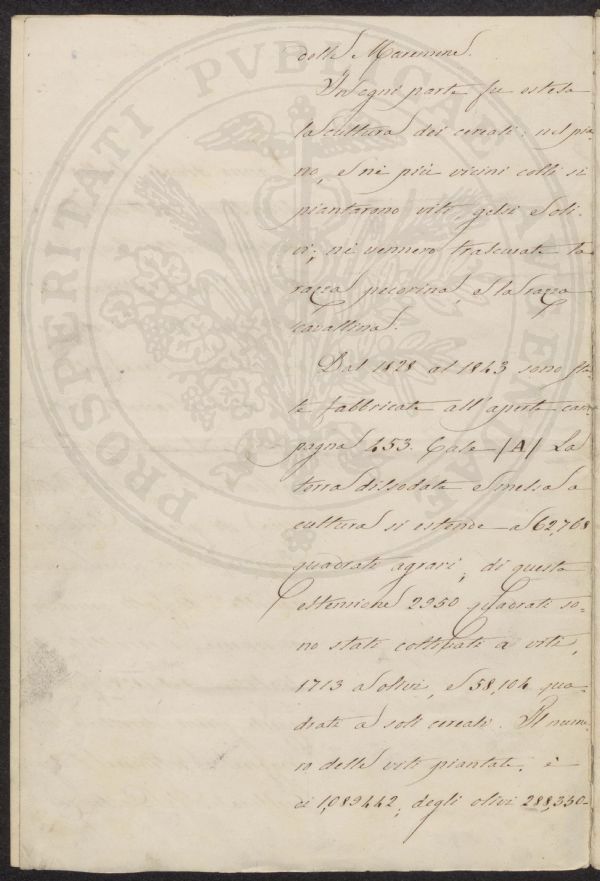 delle Maremme.
In ogni parte fu estesa
la cultura dei cereali: nel pia-
no, e ne' più vicini colli si
piantarono viti, gelsi e oli-
vi; nè vennero trascurate la
razza pecorina, e la razza
cavallina.
Dal 1828 al 1843 sono sta-
te fabbricate all'aperta cam-
pagna 453. Case (A) La
terra dissodata e messa a
cultura si estende a 62,768
quadrati agrari; di questa
estensione 2950 quadrati so-
no stati coltivati a viti,
1713 a olivi, e 58,104 qua-
drati a soli cereali. Il nume-
ro delle viti piantate, è
di 1,089442, degli olivi 288,340-
PROSPERITATI PVBLICAE AVGENDAE